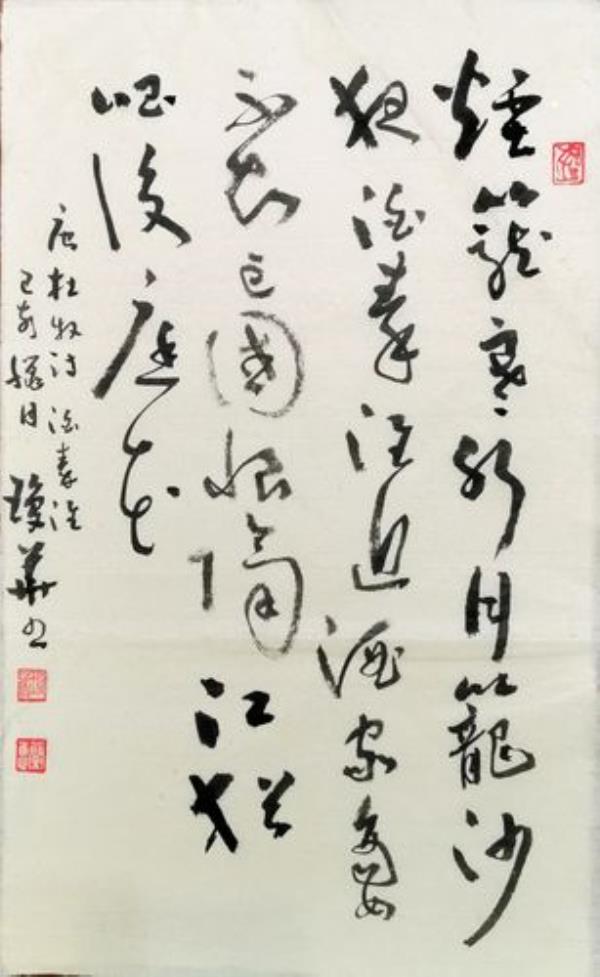 煙籠寒水月籠沙
夜泊秦淮近酒家商女
不知亡國恨隔江猶
唱後庭花
唐杜牧詩泊秦淮
己亥月瓊華书